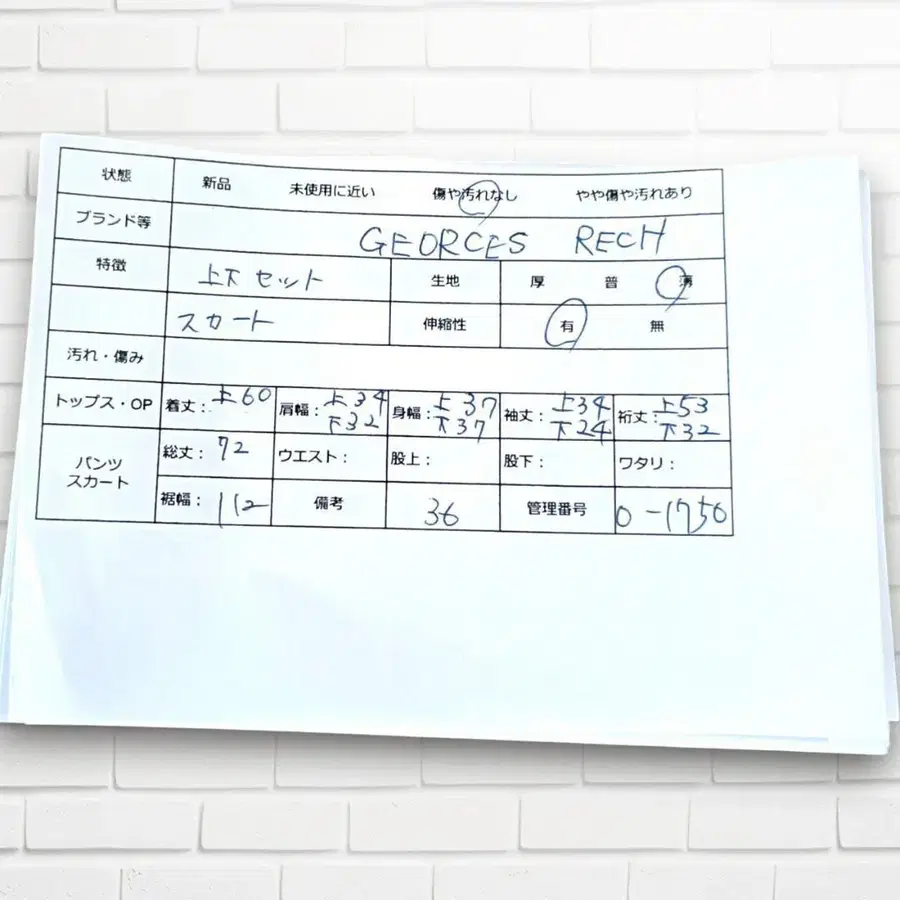 状態 新品 未使用に近い 傷や汚れなし やや傷や汚れあり
ブランド等 GEORGES RECH
特徴 上下セット 生地 厚 普 薄
スカート 伸縮性 有 無
汚れ・傷み
トップス・OP 着丈: 上60 肩幅: 上34 下32 身幅: 上37 下37 袖丈: 上34 下24 裄丈: 上53 下32
パンツ スカート 総丈: 72 ウエスト: 股上: 股下: ワタリ:
裾幅: 112 備考 36 管理番号 0-1756